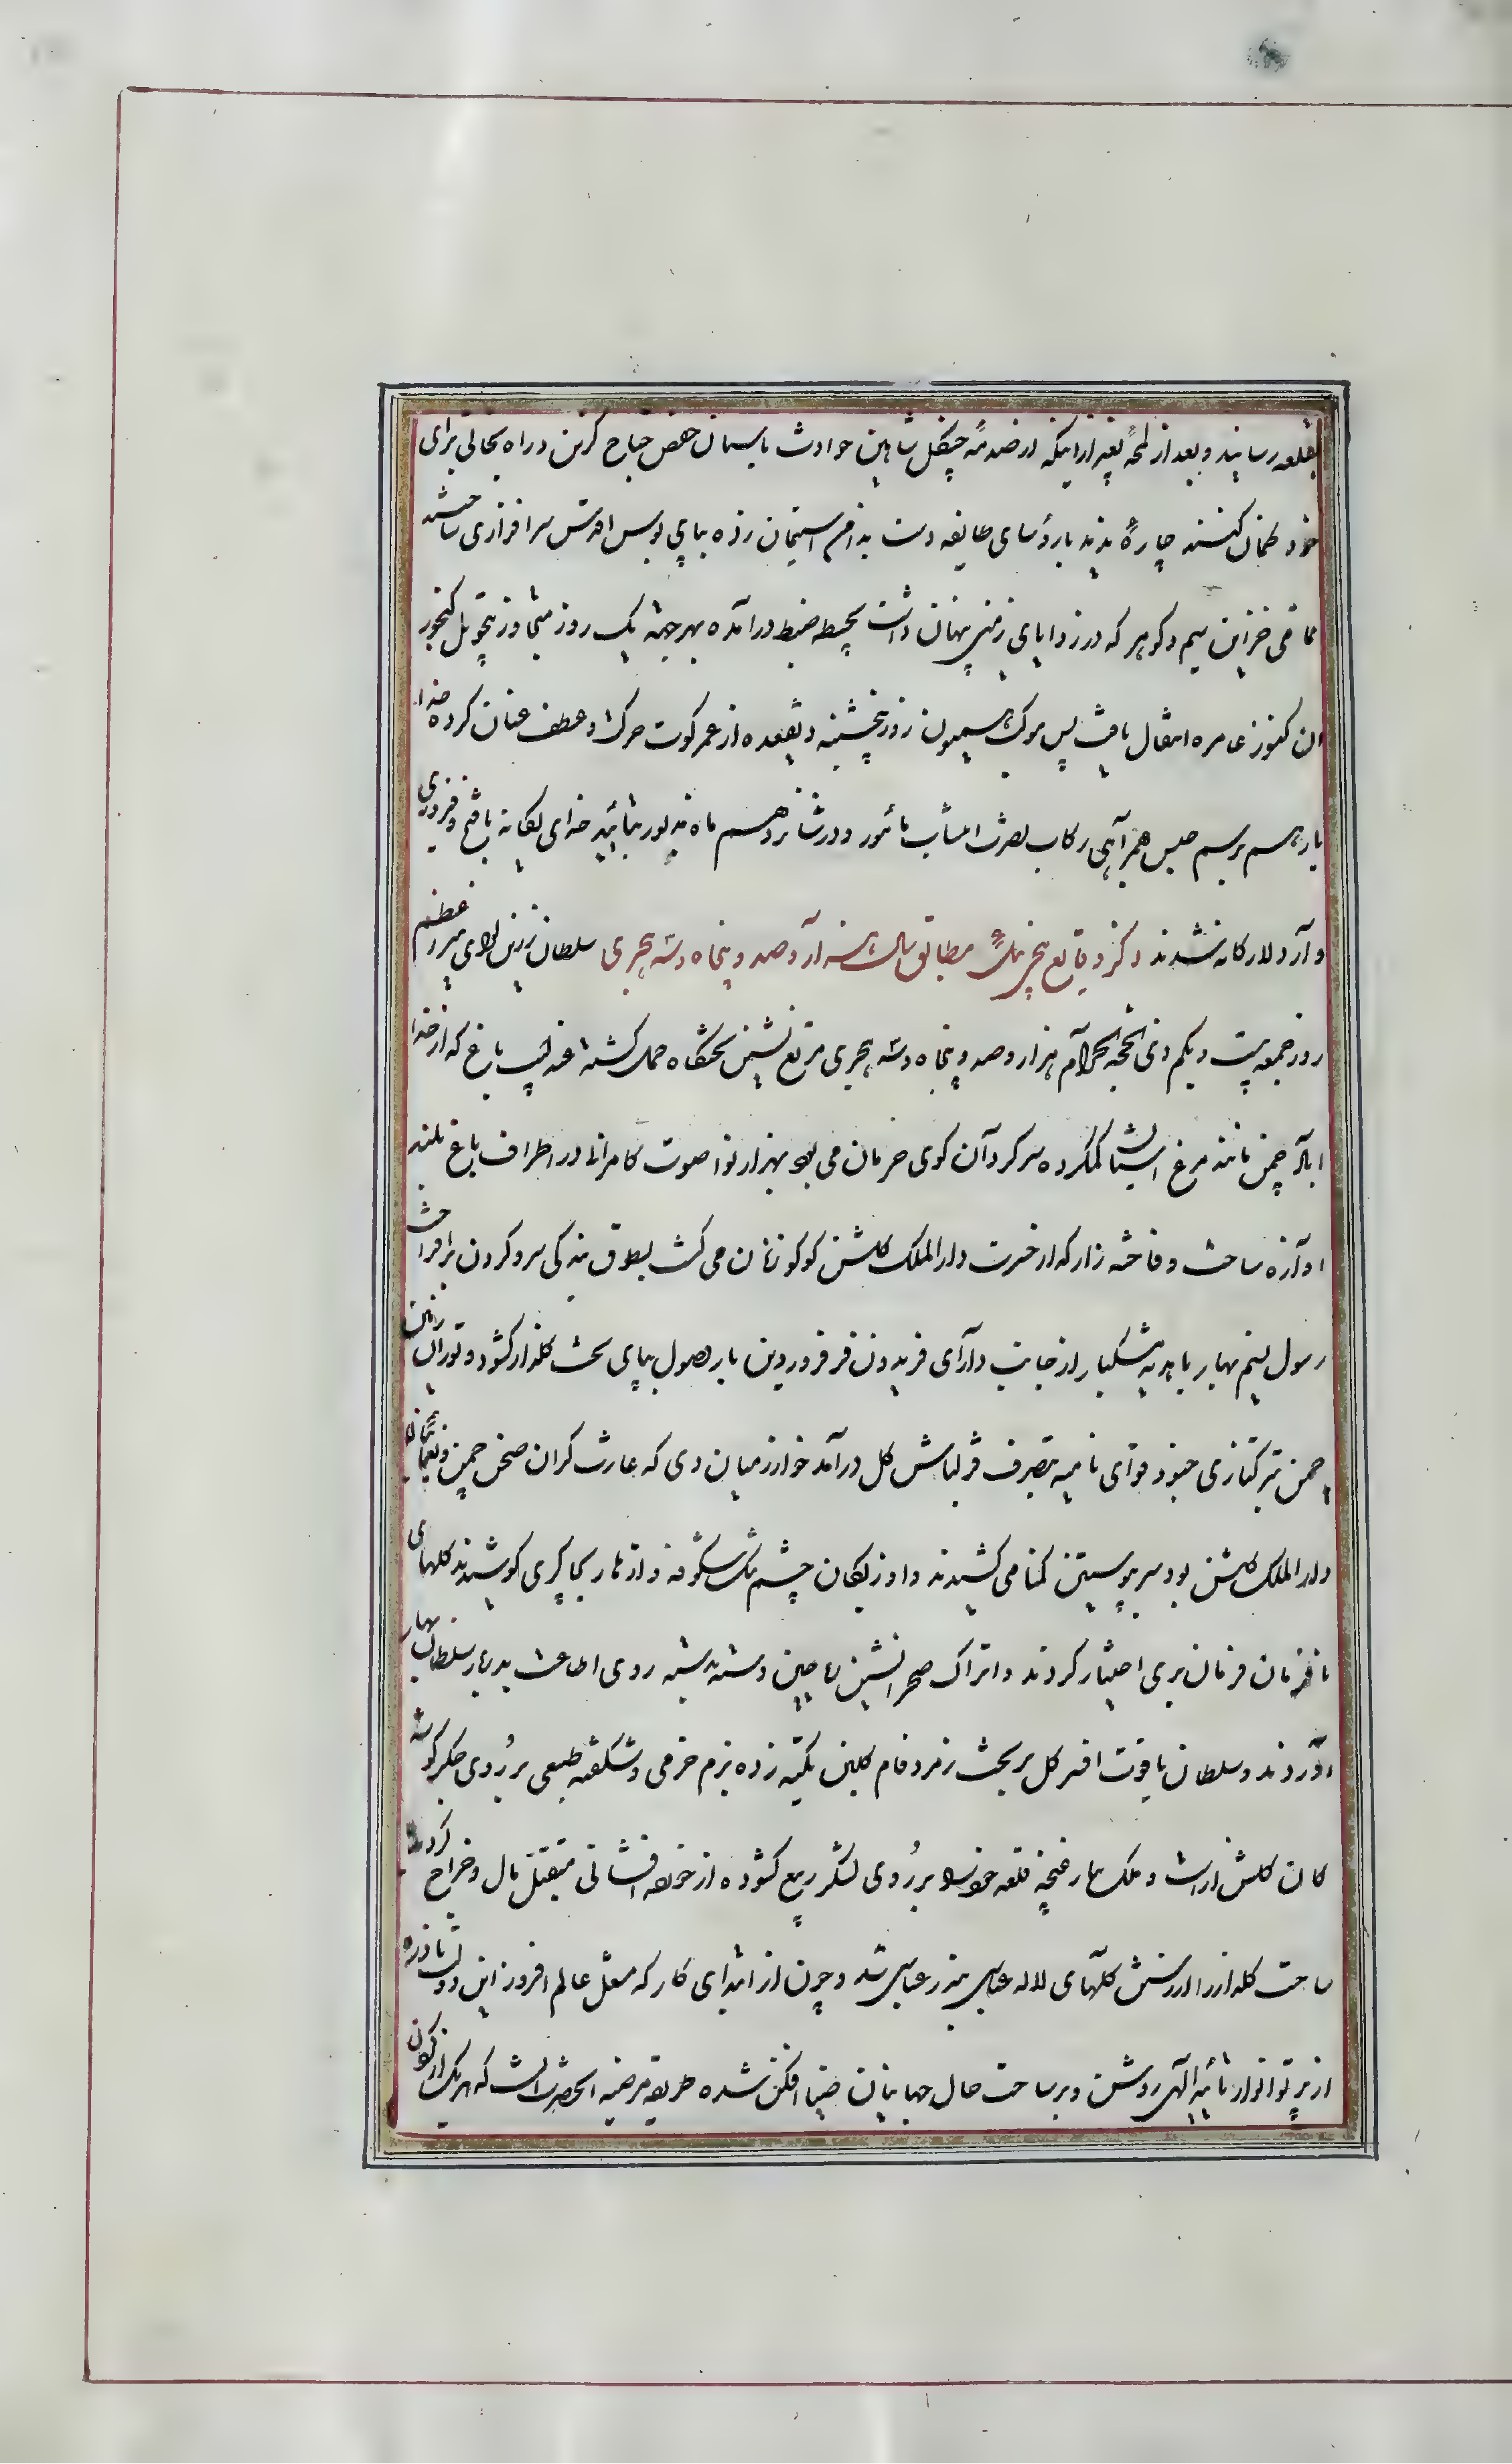 بقلعه رسانید و بعد از لمحهٔ بغیر از اینکه از صدمهٔ چنکل شاهین حوادث باسمان خفض جناح کزین و راه نجاتی برای
خود کمان کنند چارهٔ ندید با رؤسای طایفه دست بدامن استیمان زده بپای بوس اقدس سرافرازی ساختند
تمامی خزاین سیم و کوهر که در زوایای زمین پنهان داشت بحیطه ضبط درآمده بهر جهته یک روز متجاوز بتحویل کنجور
ان کنوز عامره انتقال یافت پس موکب همیون روز پنجشنبه ذیقعده از عمرکوت حرکت و عطف عنان کرده خدا
یار برسم حبس همراهی رکاب نصرت انتساب مأمور و در شانزدهم ماه مذبور بتأیید خدای یکانه با فتح و فیروزی
وارد لارکانه شدند ذکر وقایع مطابق سال هزار و صد و پنجاه و سه هجری سلطان زرین لوای مهر اعظم
روز جمعه بیست و یکم ذی الحجة الحرام هزار و صد و پنجاه و سه هجری مربع نشین تختکاه حمل کشته عندلیب باغ که از خدا
اباد چمن مانند مرغ اشیان کم کرده سر کردان کوی حرمان می بود بهزار نوا صوت کامرانی در اطراف باغ بلند
اوازه ساخت و فاخته زار که از حسرت دارالملک کلشن کوکو زنان می کشت بطوق بندکی سرو کردن برافراخت
رسول نسیم بهار با هدیه مشکبار از جانب دارای فریدون فر فروردین بار وصول بپای تخت کلزار کشود و توران زمین
چمن بترکتازی جنود قوای نامیه بتصرف قزلباش کل درآمد خوارزمیان دی که غارت کران صحن چمن و یغمائیان
دارالملک کلشن بود سر بپوستین کمنامی کشیدند و اوزبکان چشم تنک شکوفه و ازهار بچاکری کوشیدند کلهای
نافرمان فرمان بری اختیار کردند و اتراک صحرا نشین ریاحین دسته بدسته روی اطاعت بدربار سلطان بهار
اوردند و سلطان یاقوت افسر کل بر تخت زمرد فام کلبن تکیه زده بزم خرمی و شکفته طبعی بر روی جکر کوشه
کان کلشن اراست و ملک بهار غنچه قلعه خود را بر روی لشکر ربیع کشوده از خورده افشانی متقبل مال و خراج کردید
ساحت کلزار را از ریزش کلهای لاله عباسی بندر عباسی شد و چون از ابتدای کار که مشعل عالم افروز این دولت نادره
از پرتو انوار تأیید الهی روشن و بر ساحت حال جهانیان ضیا افکن شده طریقه مرضیه انحضرت انست که هر یک از